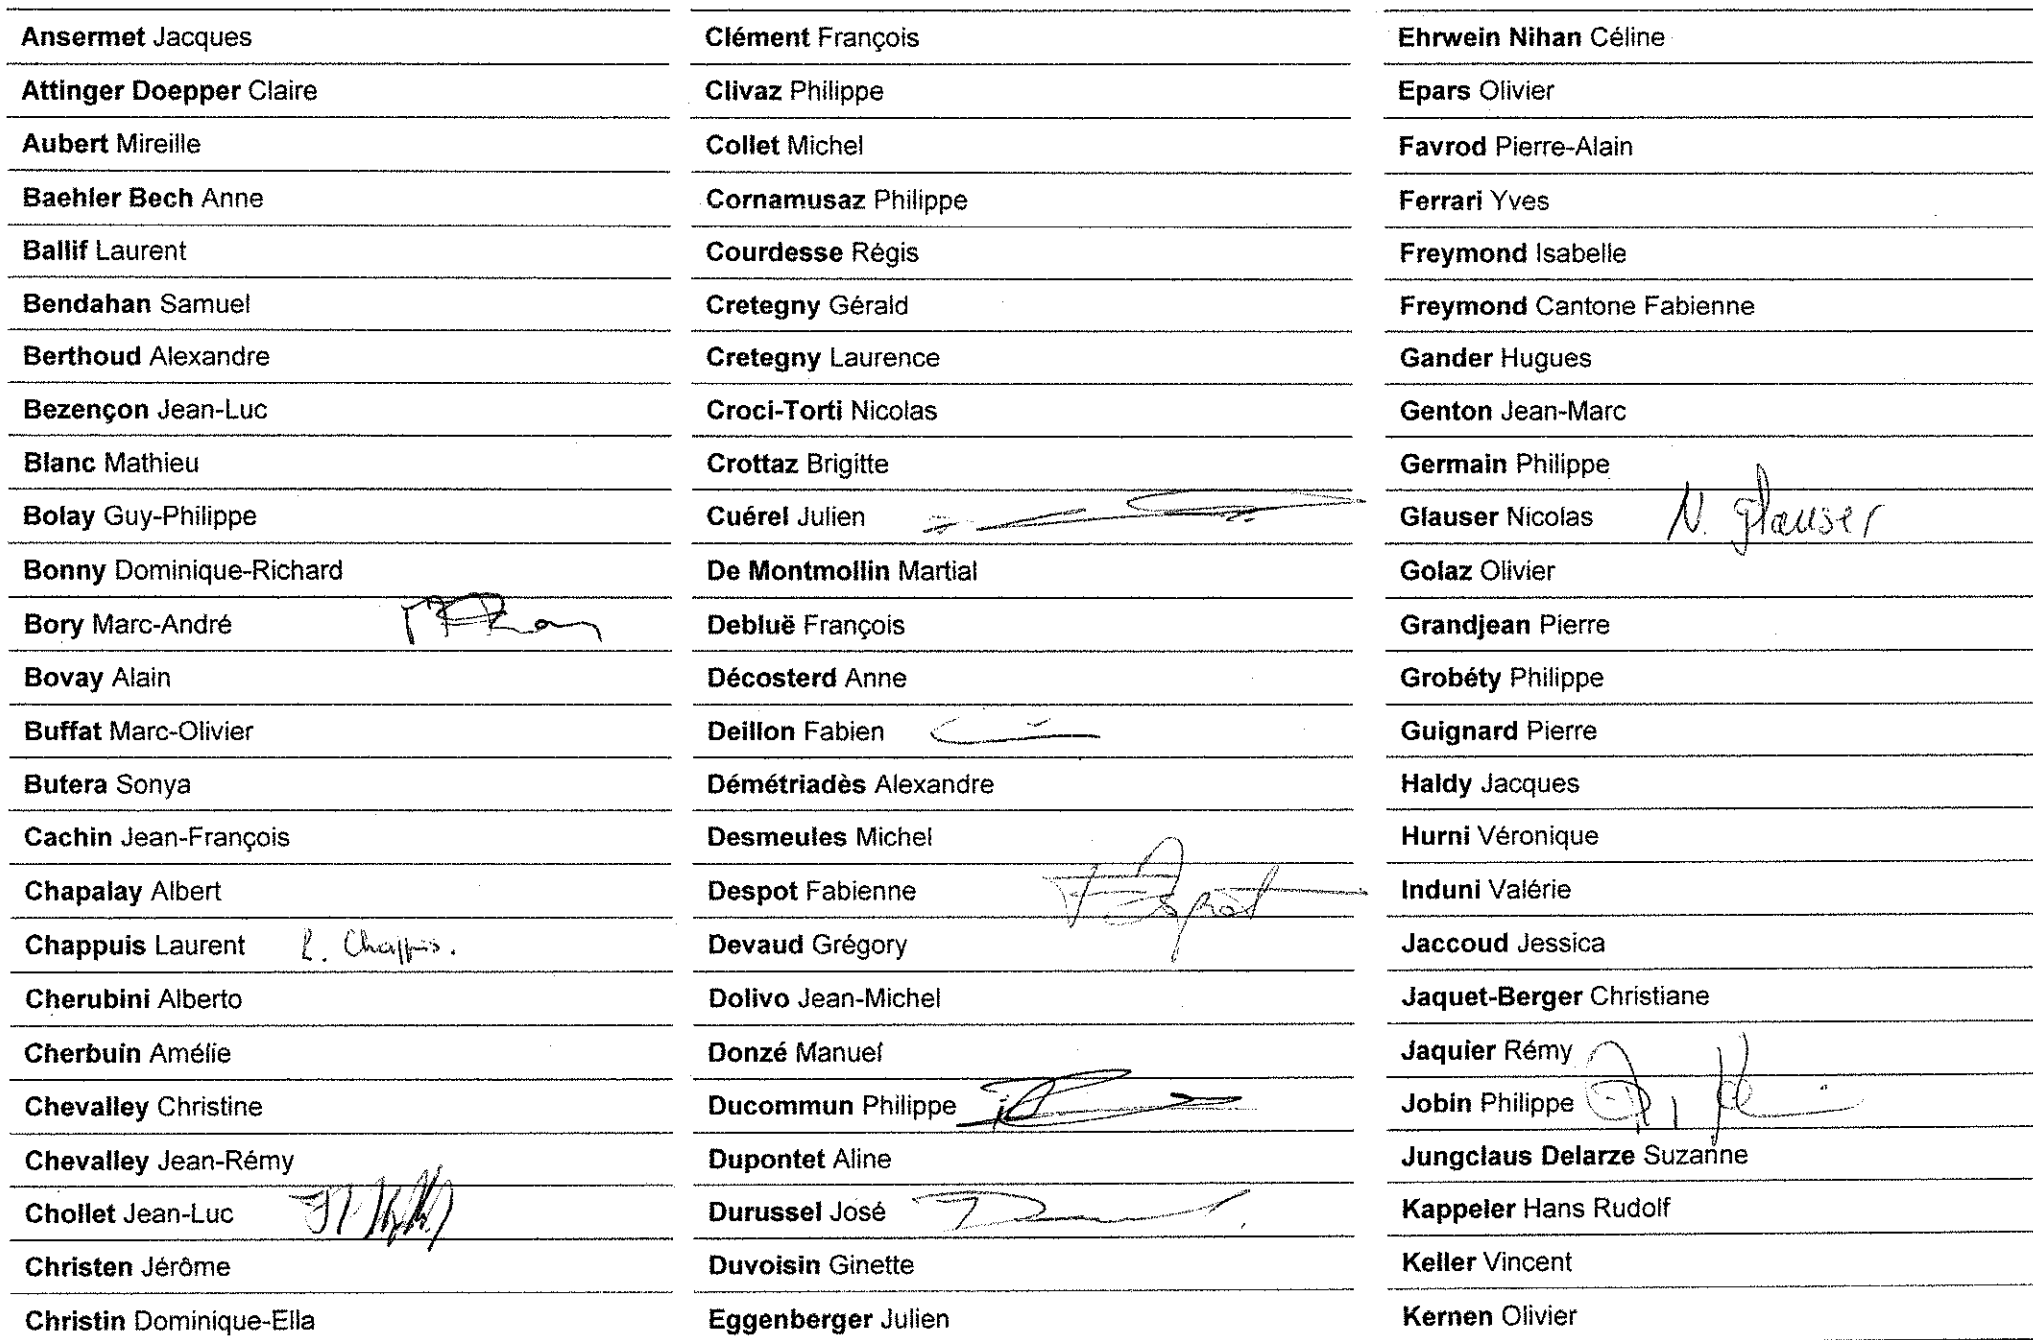 Ansermet Jacques
Attinger Doepper Claire
Aubert Mireille
Baehler Bech Anne
Ballif Laurent
Bendahan Samuel
Berthoud Alexandre
Bezençon Jean-Luc
Blanc Mathieu
Bolay Guy-Philippe
Bonny Dominique-Richard
Bory Marc-André
Bovay Alain
Buffat Marc-Olivier
Butera Sonya
Cachin Jean-François
Chapalay Albert
Chappuis Laurent L. Chappuis.
Cherubini Alberto
Cherbuin Amélie
Chevalley Christine
Chevalley Jean-Rémy
Chollet Jean-Luc
Christen Jérôme
Christin Dominique-Ella
Clément François
Clivaz Philippe
Collet Michel
Cornamusaz Philippe
Courdesse Régis
Cretegny Gérald
Cretegny Laurence
Croci-Torti Nicolas
Crottaz Brigitte
Cuérel Julien
De Montmollin Martial
Debluë François
Décosterd Anne
Deillon Fabien
Démétriadès Alexandre
Desmeules Michel
Despot Fabienne
Devaud Grégory
Dolivo Jean-Michel
Donzé Manuel
Ducommun Philippe
Dupontet Aline
Durussel José
Duvoisin Ginette
Eggenberger Julien
Ehrwein Nihan Céline
Epars Olivier
Favrod Pierre-Alain
Ferrari Yves
Freymond Isabelle
Freymond Cantone Fabienne
Gander Hugues
Genton Jean-Marc
Germain Philippe
Glauser Nicolas N. Glauser
Golaz Olivier
Grandjean Pierre
Grobéty Philippe
Guignard Pierre
Haldy Jacques
Hurni Véronique
Induni Valérie
Jaccoud Jessica
Jaquet-Berger Christiane
Jaquier Rémy
Jobin Philippe
Jungclaus Delarze Suzanne
Kappeler Hans Rudolf
Keller Vincent
Kernen Olivier